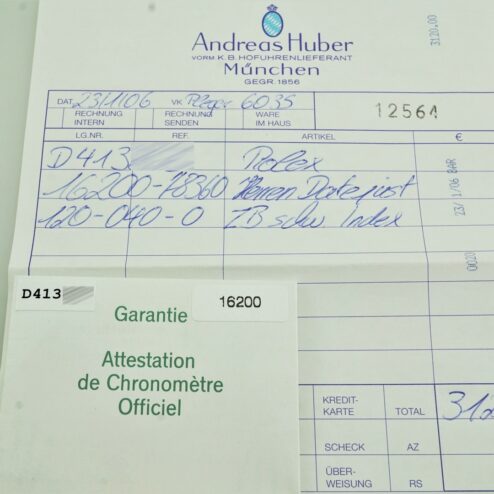 Andreas Huber
VORM K.B. HOFUHRENLIEFERANT
München
GEGR. 1856
3120.00
DAT. 23/1/06 VK 6035 12564
RECHNUNG INTERN RECHNUNG SENDEN WARE IM HAUS
LG.NR. REF. ARTIKEL €
D413 Rolex
16200-78360 Herren Datejust
120-040-0 ZB schw. Index
23/ 1/06 BAR
0020
D413 16200
Garantie
Attestation
de Chronomètre
Officiel
KREDIT-KARTE TOTAL
SCHECK AZ
ÜBER-WEISUNG RS